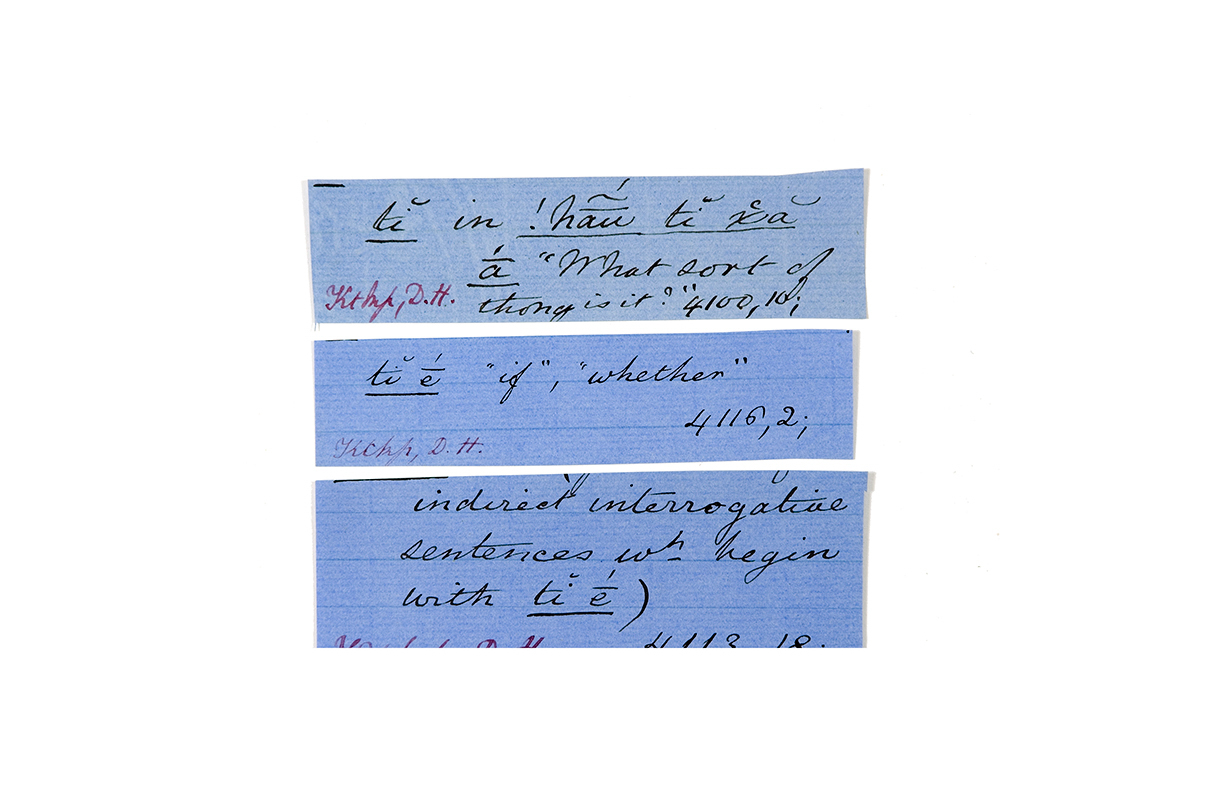 tĭ in !hãū́ tĭ x̌ă
ā́ "What sort of
thong is it?" 4100, 10;
Kthp, D.H.
tĭ ḗ "if", "whether"
4116, 2;
Kchp, D. H.
indirect interrogative
sentences wh begin
with tĭ ḗ)
D. H. 4113, 18;